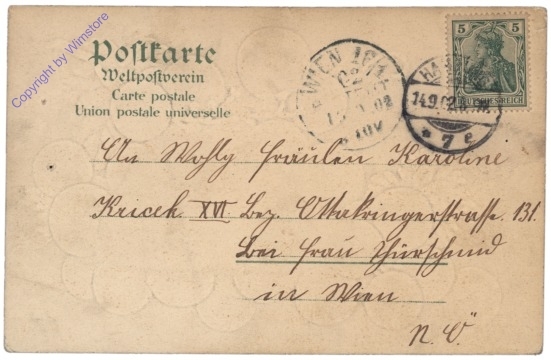 Copyright by Wimstore
Postkarte
Weltpostverein
Carte postale
Union postale universelle
WIEN
5 5
14.9.02
DEUTSCHES REICH
* 7 e
An Wohlg Fräulen Karoline
Kricek XVI Bez. Ottakringerstrasse. 131.
bei Frau Thürschmid
in Wien
N. Ö.